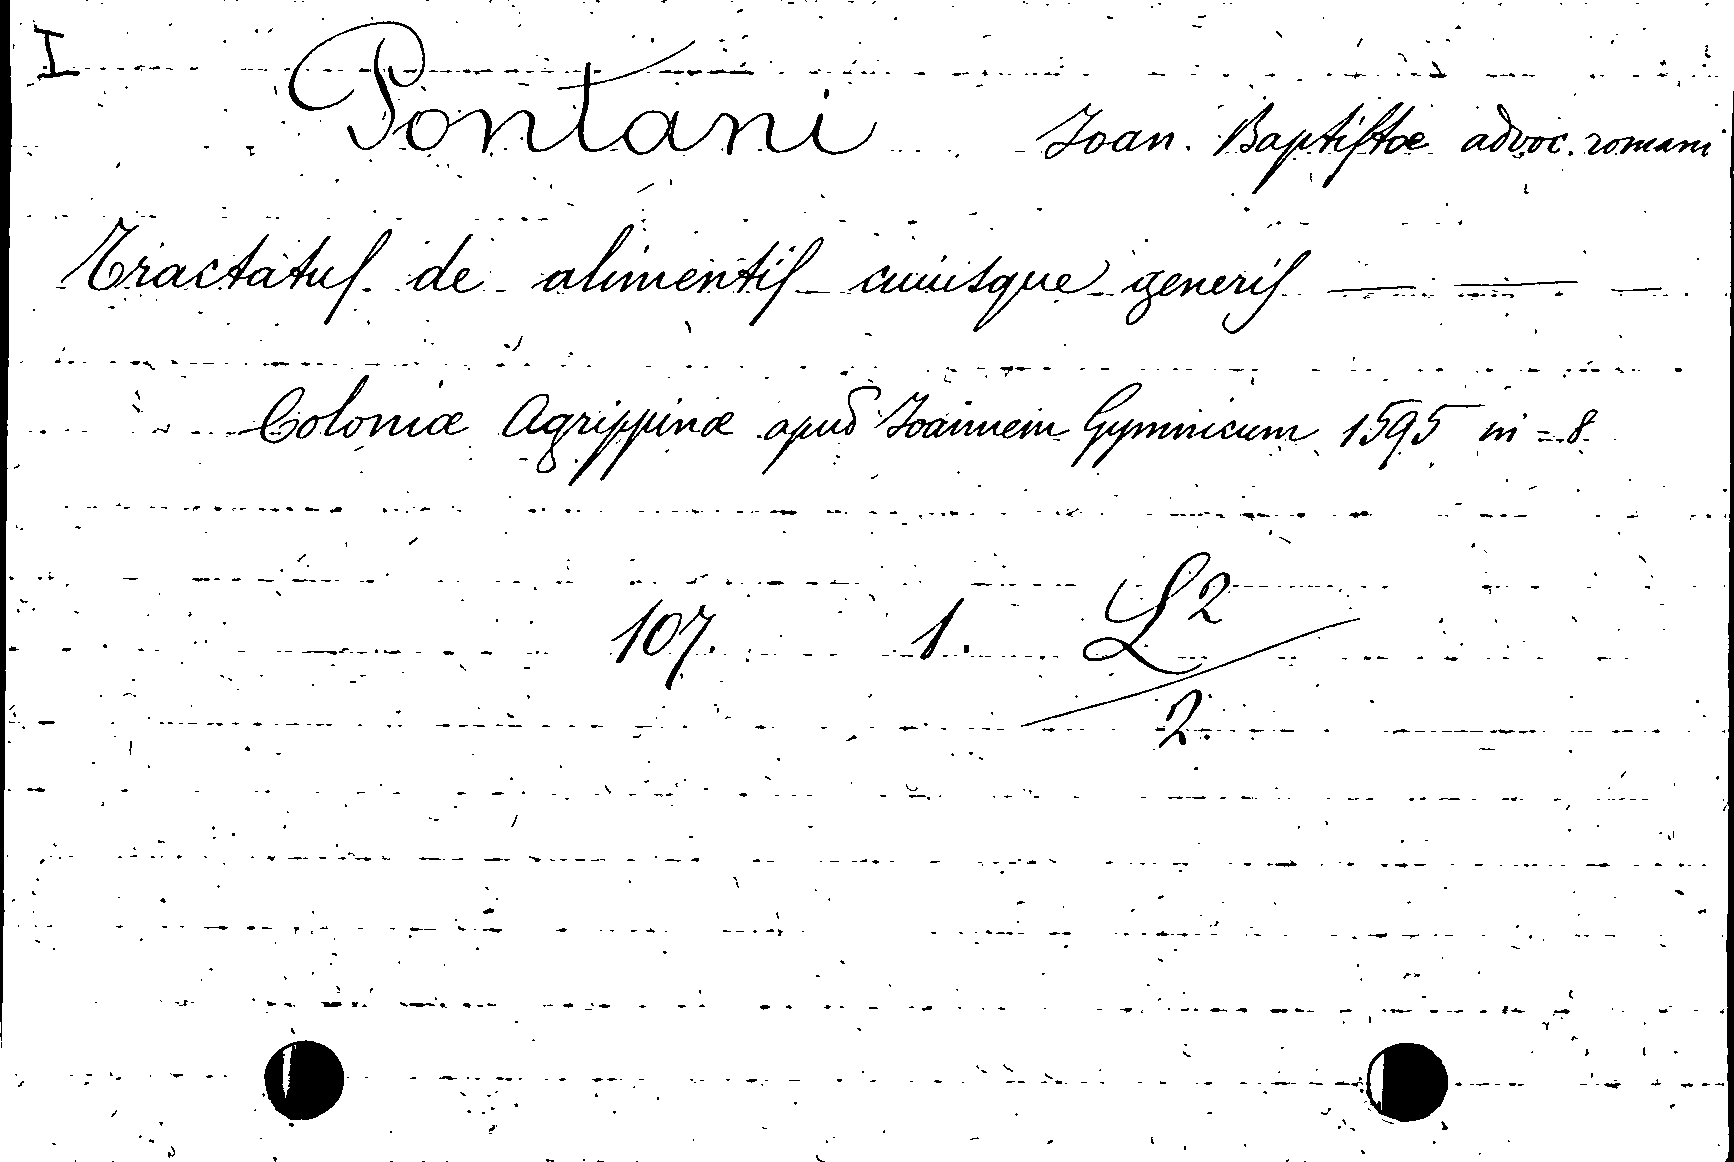 I
Pontani Joan. Baptistæ advoc. romani
Tractatus de alimentis cuiusque generis — — —
Coloniæ Agrippinæ apud Joannem Gymnicum 1595 in = 8.
107. 1. L2
2.